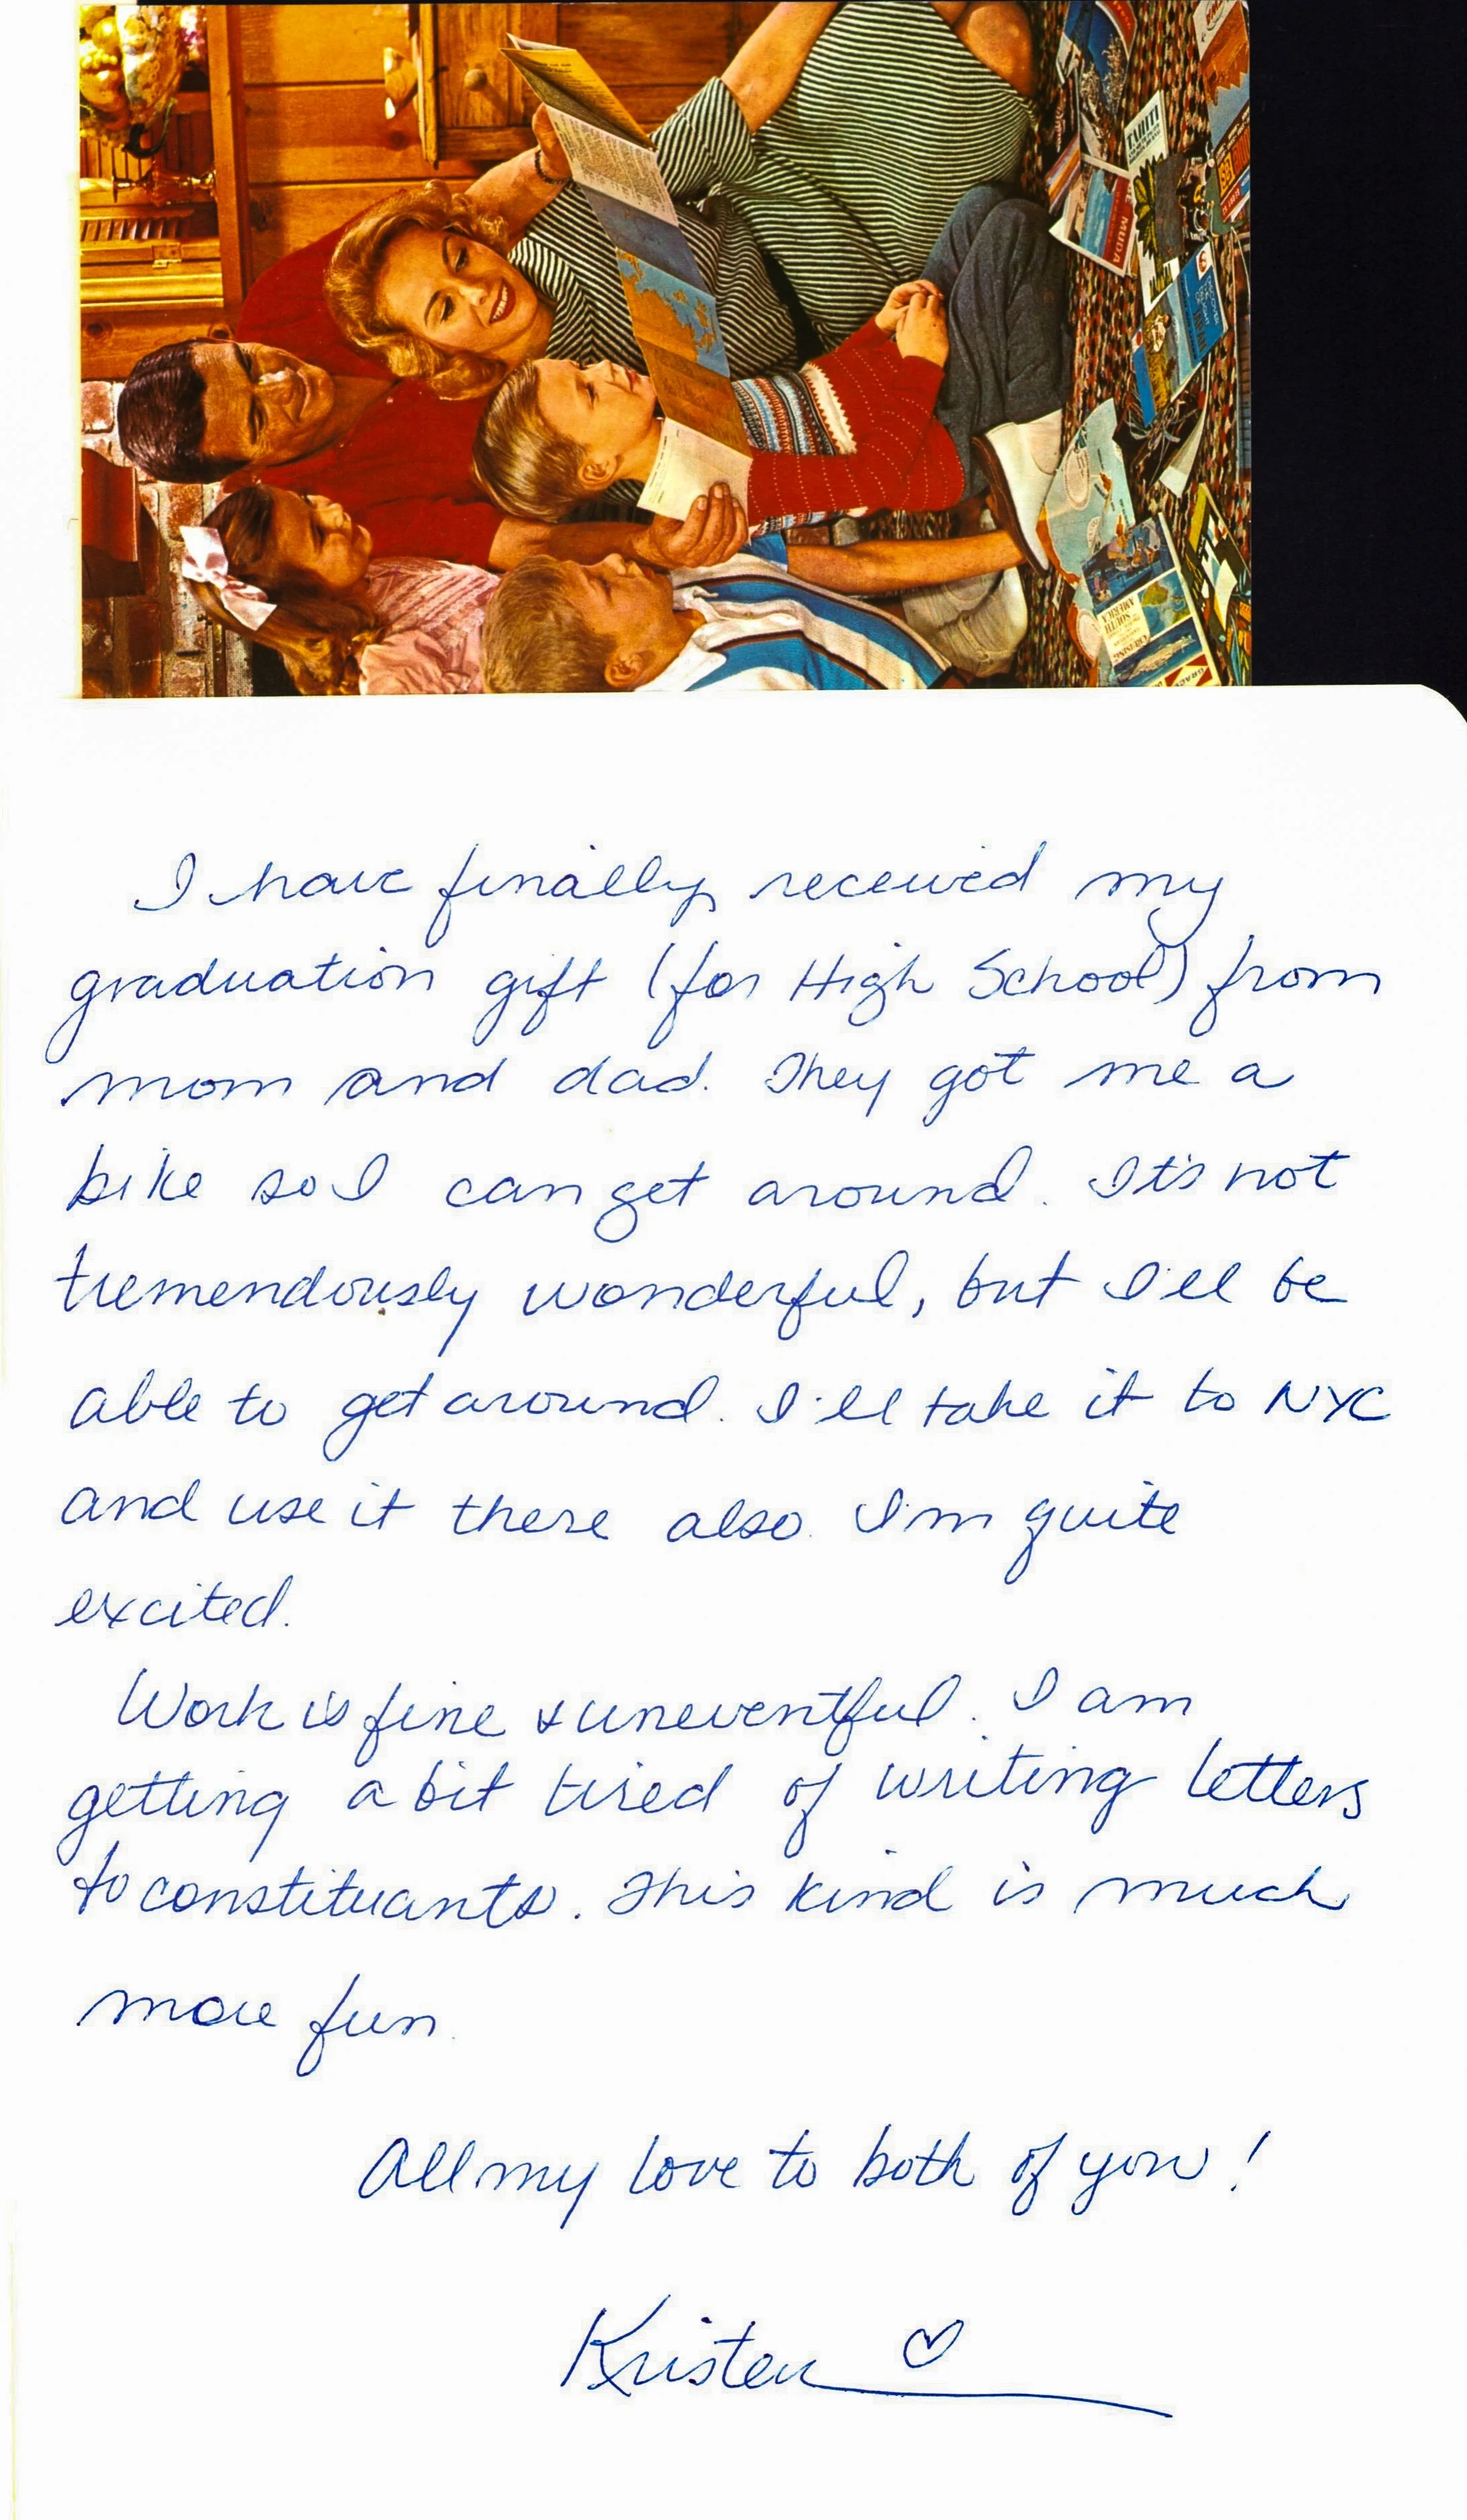 TAHITI
MUDA
SOUTH
AMERICA
GRACE
I have finally received my
graduation gift (for High School) from
mom and dad. They got me a
bike so I can get around. It's not
tremendously wonderful, but I'll be
able to get around. I'll take it to NYC
and use it there also. I'm quite
excited.
Work is fine & uneventful. I am
getting a bit tired of writing letters
to constituants. This kind is much
more fun.
All my love to both of you!
Kristen ♡